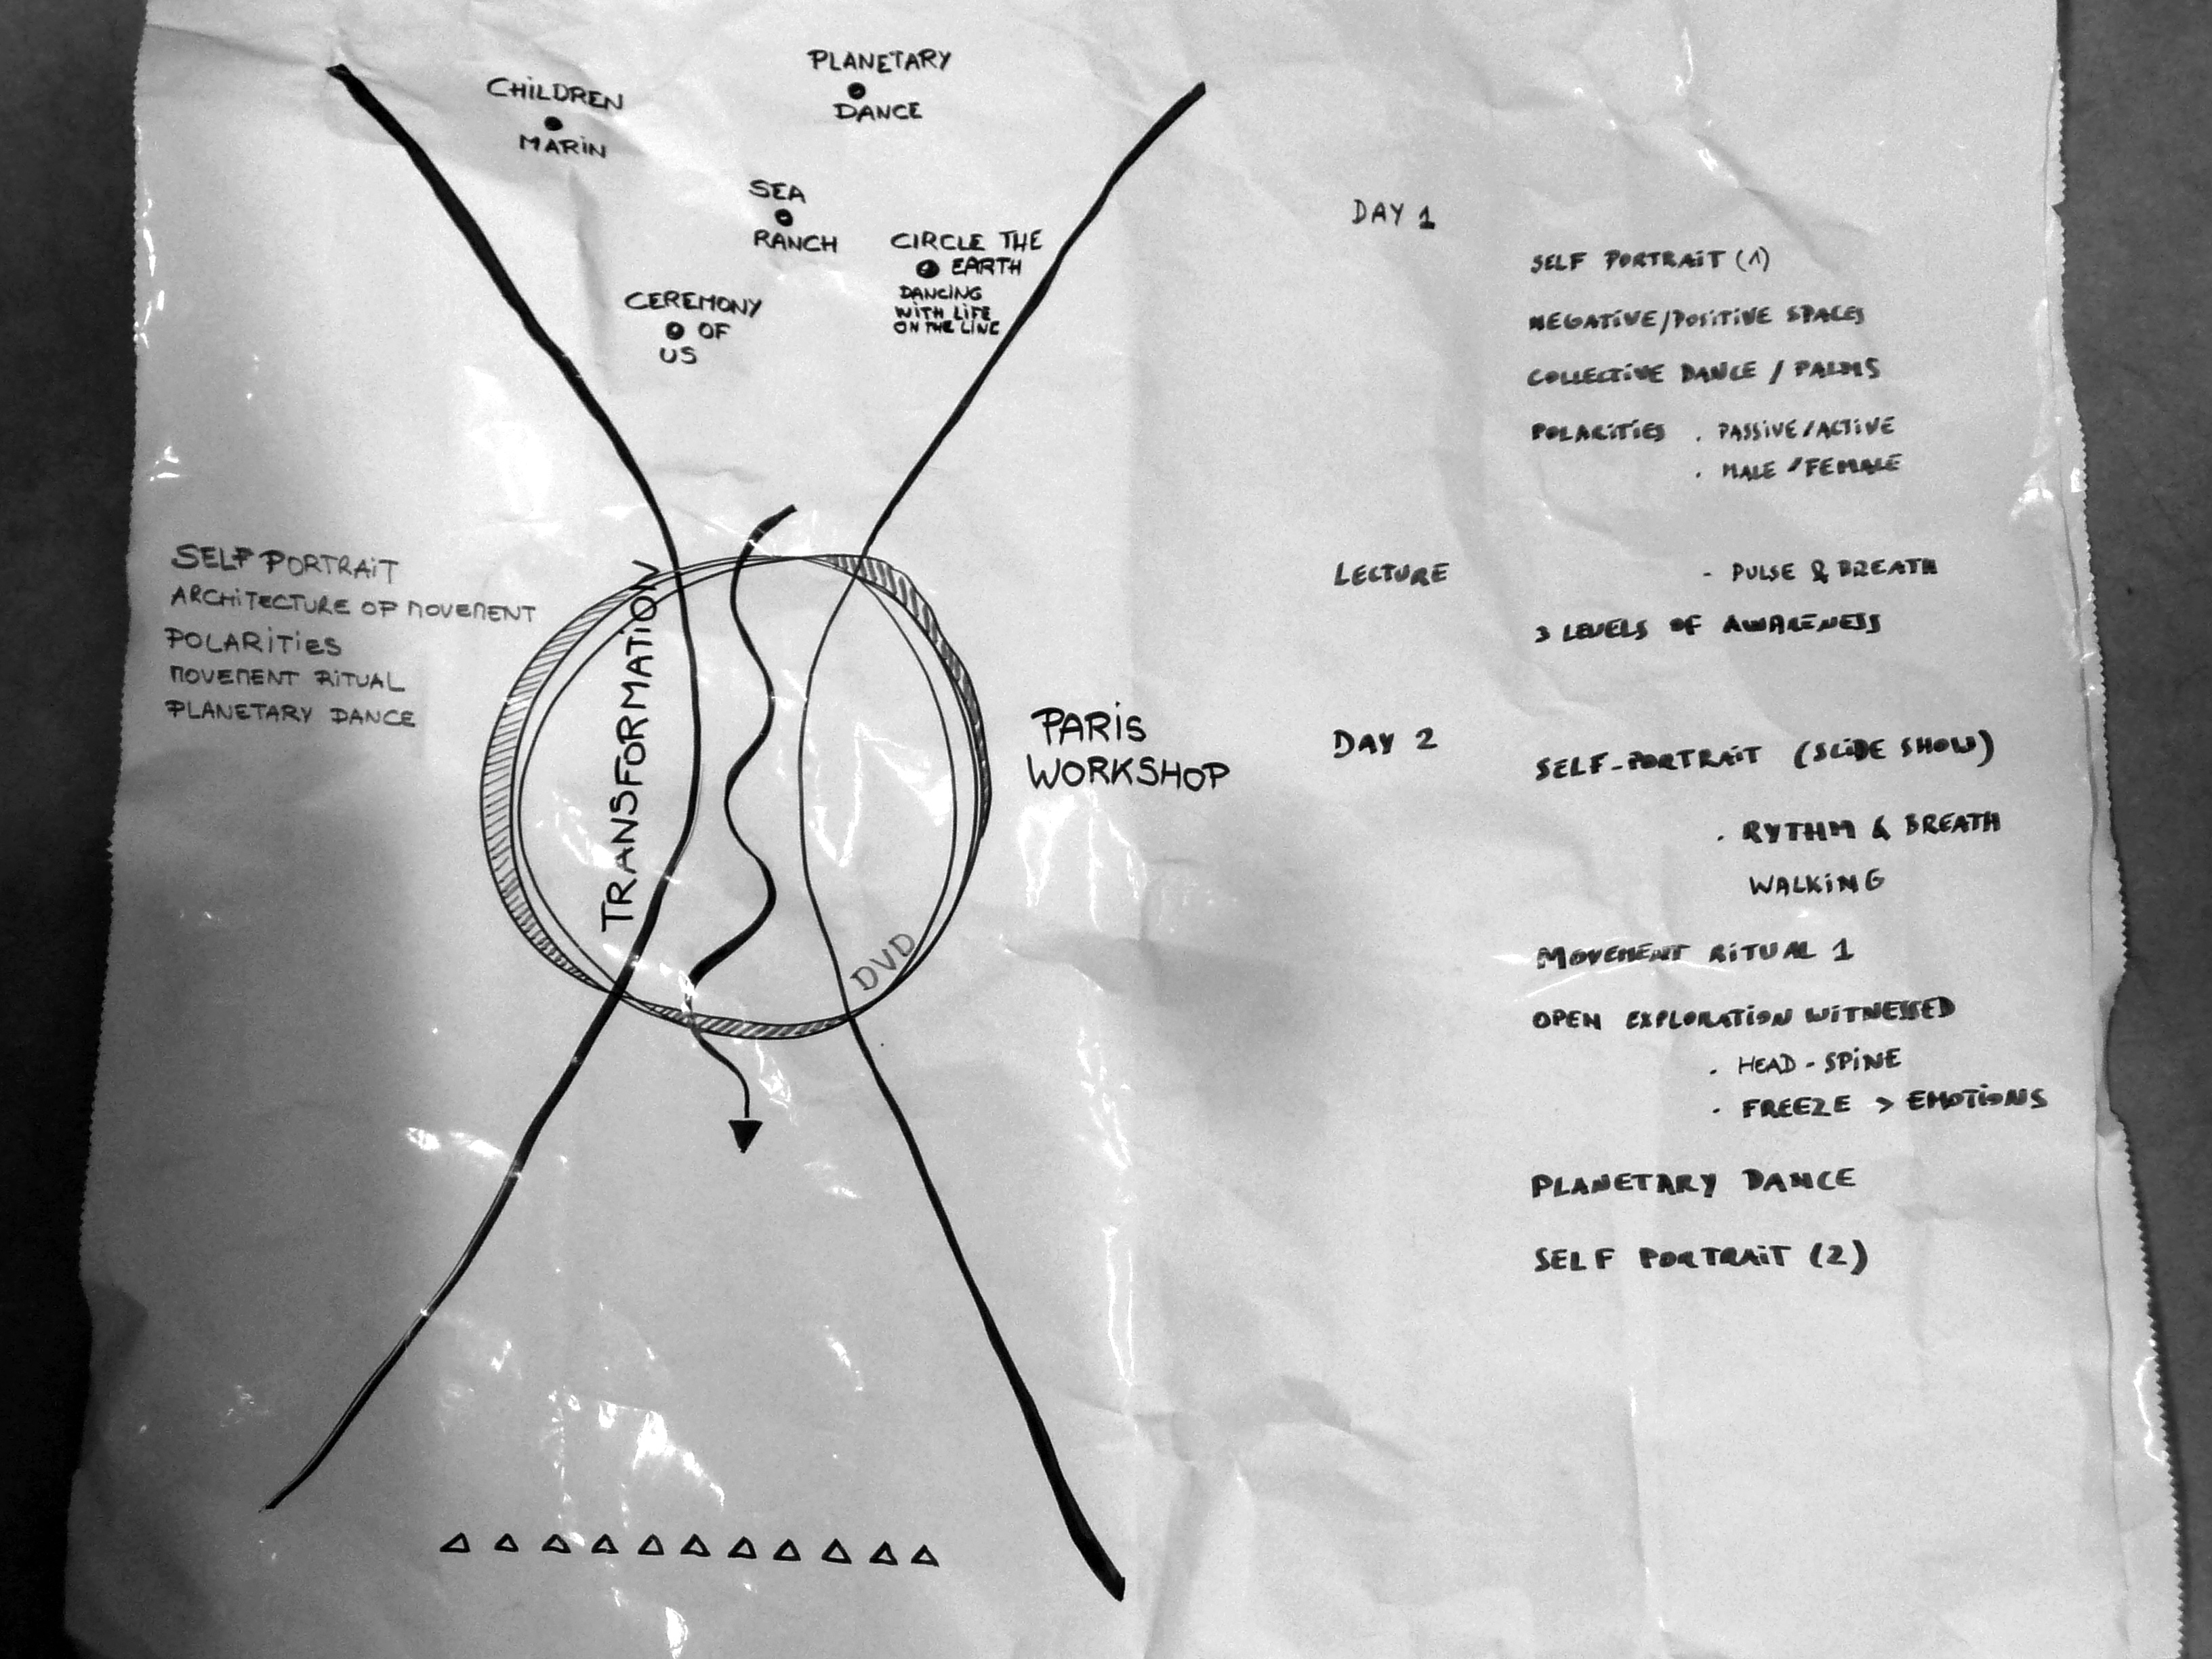 CHILDREN
MARIN
PLANETARY
DANCE
SEA
RANCH
CIRCLE THE
EARTH
DANCING
WITH LIFE
ON THE LINE
CEREMONY
OF
US
SELF PORTRAIT
ARCHITECTURE OF MOVEMENT
POLARITIES
MOVEMENT RITUAL
PLANETARY DANCE
TRANSFORMATION
DVD
PARIS
WORKSHOP
DAY 1
SELF PORTRAIT (1)
NEGATIVE/POSITIVE SPACES
COLLECTIVE DANCE / PALMS
POLARITIES . PASSIVE/ACTIVE
. MALE / FEMALE
LECTURE - PULSE & BREATH
3 LEVELS OF AWARENESS
DAY 2
SELF-PORTRAIT (SLIDE SHOW)
. RYTHM & BREATH
WALKING
MOVEMENT RITUAL 1
OPEN EXPLORATION WITNESSED
. HEAD - SPINE
. FREEZE > EMOTIONS
PLANETARY DANCE
SELF PORTRAIT (2)